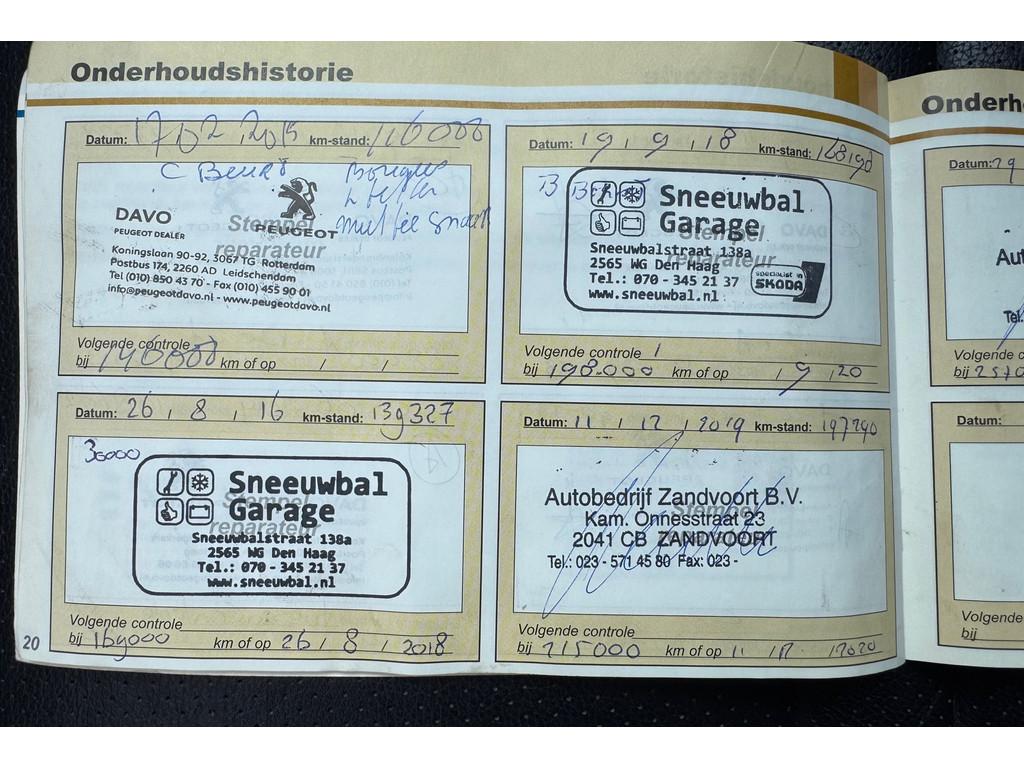 Onderhoudshistorie
Datum: 17, 02, 2015 km-stand: 116000
C Beurt
DAVO
PEUGEOT DEALER
PEUGEOT
Stempel
reparateur
Koningslaan 90-92, 3067 TG Rotterdam
Postbus 174, 2260 AD Leidschendam
Tel (010) 850 43 70 - Fax (010) 455 90 01
info@peugeotdavo.nl - www.peugeotdavo.nl
Volgende controle
bij 140000 km of op / /
Datum: 19, 9, 18 km-stand:
Sneeuwbal
Garage
Stempel
reparateur
Sneeuwbalstraat 138a
2565 WG Den Haag
Tel.: 070 - 345 21 37
www.sneeuwbal.nl
specialist in
SKODA
Volgende controle
bij 198.000 km of op , 9 , 20
Datum: 26, 8, 16 km-stand: 139327
30000
Sneeuwbal
Garage
Stempel
reparateur
Sneeuwbalstraat 138a
2565 WG Den Haag
Tel.: 070 - 345 21 37
www.sneeuwbal.nl
Volgende controle
bij 169000 km of op 26 / 8 / 2018
Datum: 11, 12, 2019 km-stand: 197290
Autobedrijf Zandvoort B.V.
Kam. Onnesstraat 23
2041 CB ZANDVOORT
Tel.: 023 - 571 45 80 Fax: 023 -
Stempel
Volgende controle
bij 215000 km of op 11 / 12 / 2020
20
Onderh
Datum:
Aut
Tel.
Volgende c
bij 2570
Datum:
Volgende
bij